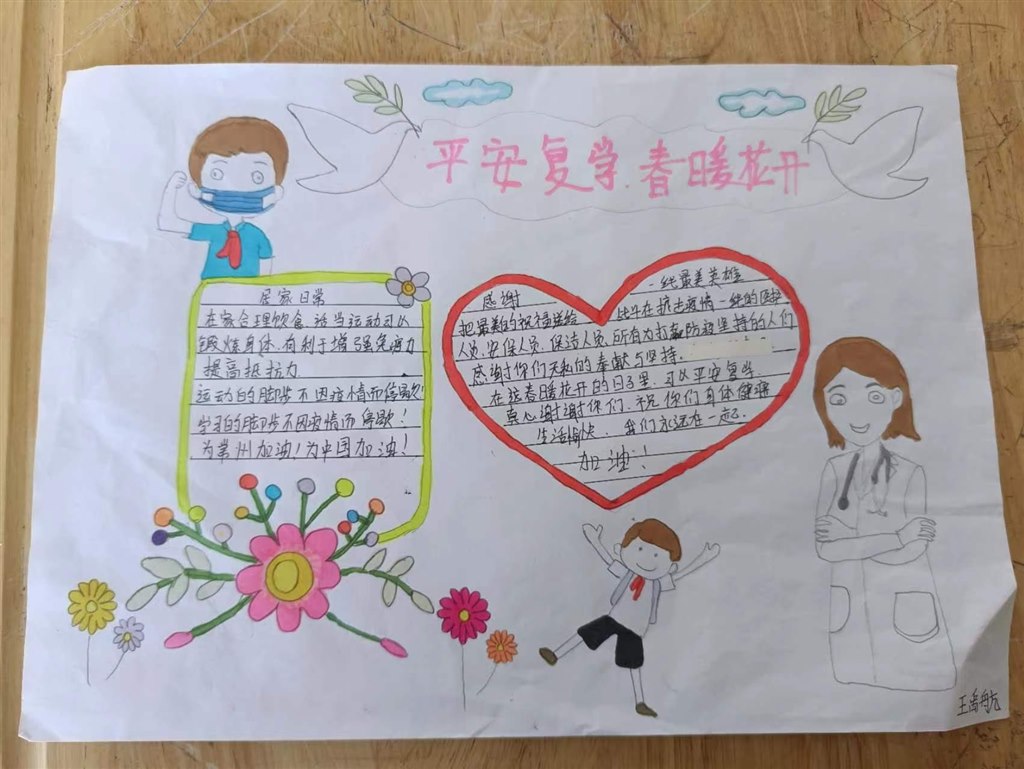 平安复学 春暖花开
居家日常
在家合理饮食,适当运动可以
锻炼身体,有利于增强免疫力
提高抵抗力
运动的脚步不因疫情而停歇!
学习的脚步不因疫情而停歇!
为常州加油!为中国加油!
感谢
一线最美英雄
把最美的祝福送给
战斗在抗击疫情一线的医护
人员,安保人员,保洁人员,所有为抗击防疫坚持的人们
感谢你们无私的奉献与坚持.
在这春暖花开的日子里,可以平安复学
真心谢谢你们,祝你们身体健康
生活愉快,我们永远在一起
加油!
王禹舟